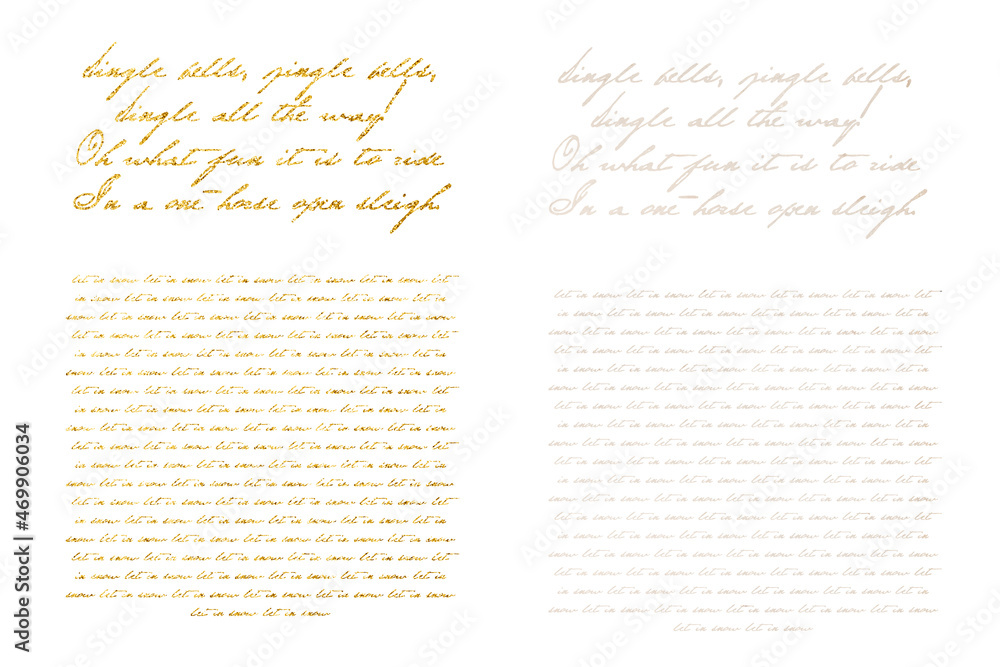 Jingle bells, jingle bells,
Jingle all the way!
Oh what fun it is to ride
In a one-horse open sleigh.
let in snow let in snow let in snow let in snow let in snow let
in snow let in snow let in snow let in snow let in snow let in
snow let in snow let in snow let in snow let in snow let in snow
let in snow let in snow let in snow let in snow let in snow let
in snow let in snow let in snow let in snow let in snow let in
snow let in snow let in snow let in snow let in snow let in snow
let in snow let in snow let in snow let in snow let in snow let
in snow let in snow let in snow let in snow let in snow let in
snow let in snow let in snow let in snow let in snow let in snow
let in snow let in snow let in snow let in snow let in snow let
in snow let in snow let in snow let in snow let in snow let in
snow let in snow let in snow let in snow let in snow let in snow
let in snow let in snow let in snow let in snow let in snow let
in snow let in snow let in snow let in snow let in snow let in
snow let in snow let in snow let in snow let in snow let in snow
let in snow let in snow let in snow let in snow let in snow let
in snow let in snow let in snow let in snow let in snow let in
snow let in snow let in snow let in snow let in snow let in snow
let in snow let in snow
Jingle bells, jingle bells,
Jingle all the way!
Oh what fun it is to ride
In a one-horse open sleigh.
let in snow let in snow let in snow let in snow let in snow let
in snow let in snow let in snow let in snow let in snow let in
snow let in snow let in snow let in snow let in snow let in snow
let in snow let in snow let in snow let in snow let in snow let
in snow let in snow let in snow let in snow let in snow let in
snow let in snow let in snow let in snow let in snow let in snow
let in snow let in snow let in snow let in snow let in snow let
in snow let in snow let in snow let in snow let in snow let in
snow let in snow let in snow let in snow let in snow let in snow
let in snow let in snow let in snow let in snow let in snow let
in snow let in snow let in snow let in snow let in snow let in
snow let in snow let in snow let in snow let in snow let in snow
let in snow let in snow let in snow let in snow let in snow let
in snow let in snow let in snow let in snow let in snow let in
snow let in snow let in snow let in snow let in snow let in snow
let in snow let in snow let in snow let in snow let in snow let
in snow let in snow let in snow let in snow let in snow let in
snow let in snow let in snow let in snow let in snow let in snow
let in snow let in snow
Adobe Stock | #469906034